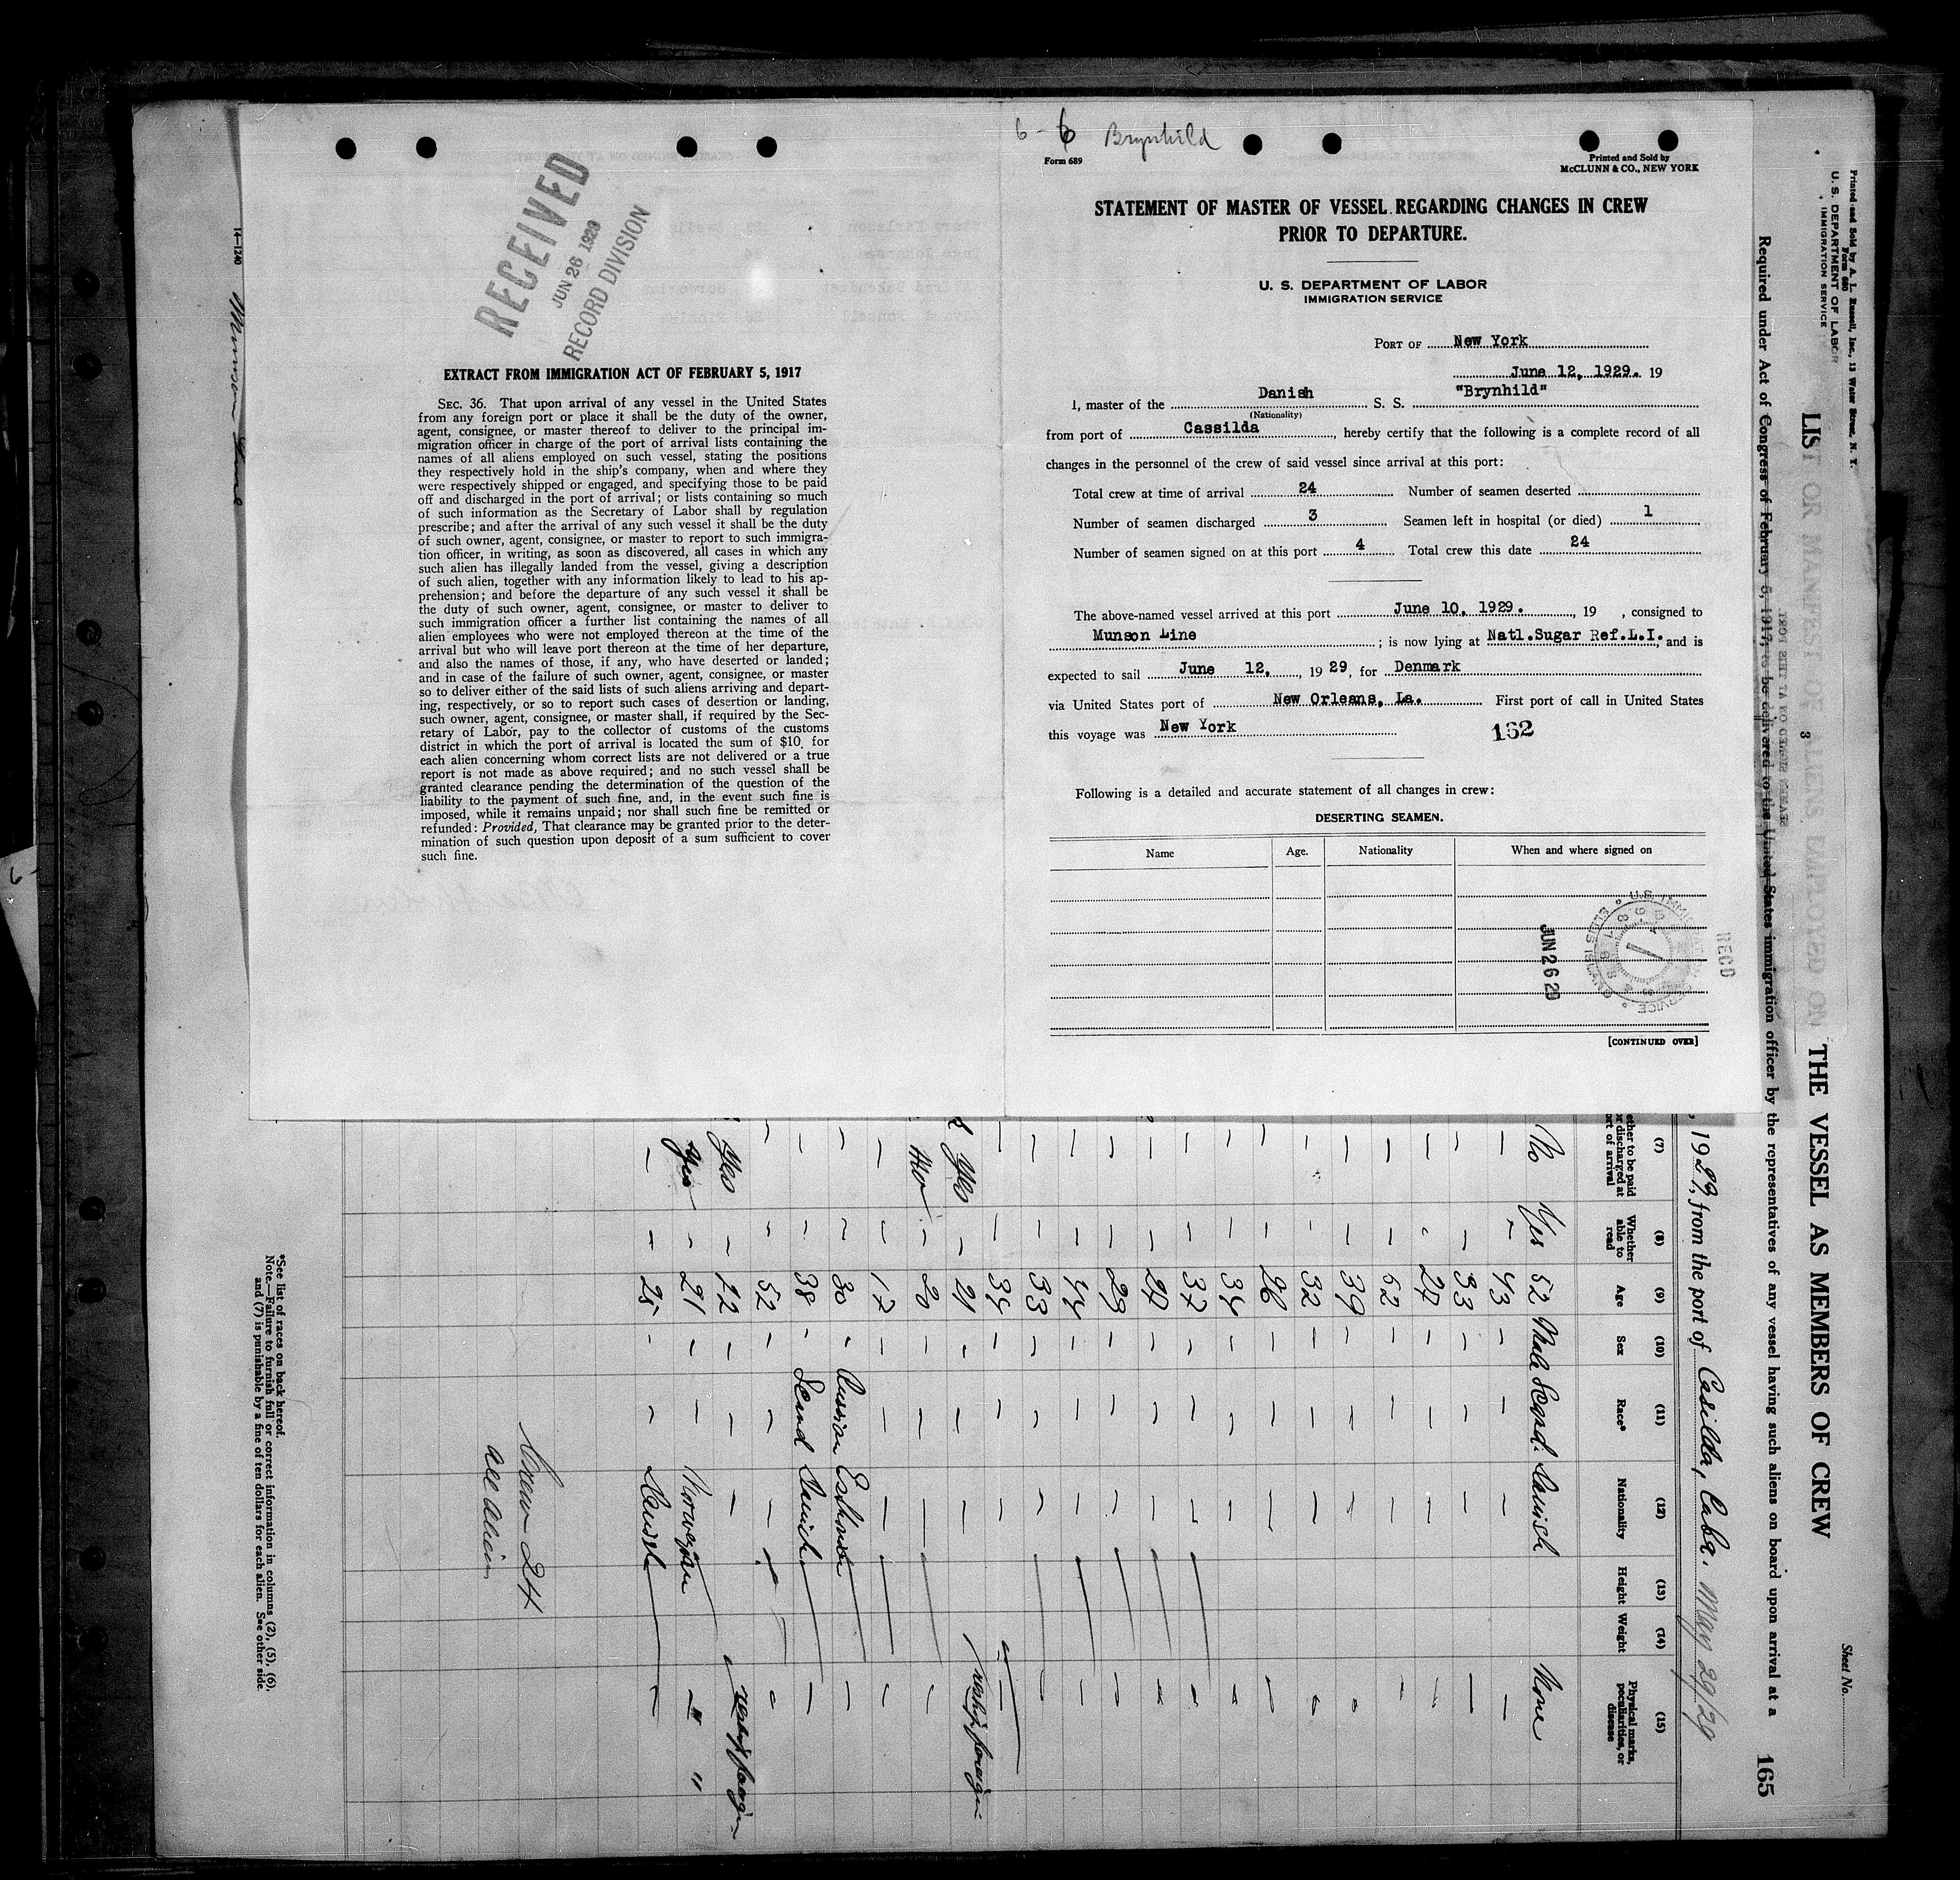 6- 6 Brynhild
Form 689
Printed and Sold by
McCLUNN & CO., NEW YORK
STATEMENT OF MASTER OF VESSEL REGARDING CHANGES IN CREW
PRIOR TO DEPARTURE.
U. S. DEPARTMENT OF LABOR
IMMIGRATION SERVICE
PORT OF New York
June 12, 1929. 19
I, master of the Danish S. S. "Brynhild"
(Nationality)
from port of Cassilda, hereby certify that the following is a complete record of all
changes in the personnel of the crew of said vessel since arrival at this port:
Total crew at time of arrival 24 Number of seamen deserted
Number of seamen discharged 3 Seamen left in hospital (or died) 1
Number of seamen signed on at this port 4 Total crew this date 24
The above-named vessel arrived at this port June 10, 1929. , 19 , consigned to
Munson Line ; is now lying at Natl.Sugar Ref.L.I. and is
expected to sail June 12, , 19 29, for Denmark
via United States port of New Orleans, La. First port of call in United States
this voyage was New York
162
Following is a detailed and accurate statement of all changes in crew:
DESERTING SEAMEN.
Name Age. Nationality When and where signed on
JUN 26 29
RECD
[CONTINUED OVER]
RECEIVED
JUN 26 1929
RECORD DIVISION
EXTRACT FROM IMMIGRATION ACT OF FEBRUARY 5, 1917
SEC. 36. That upon arrival of any vessel in the United States
from any foreign port or place it shall be the duty of the owner,
agent, consignee, or master thereof to deliver to the principal im-
migration officer in charge of the port of arrival lists containing the
names of all aliens employed on such vessel, stating the positions
they respectively hold in the ship's company, when and where they
were respectively shipped or engaged, and specifying those to be paid
off and discharged in the port of arrival; or lists containing so much
of such information as the Secretary of Labor shall by regulation
prescribe; and after the arrival of any such vessel it shall be the duty
of such owner, agent, consignee, or master to report to such immigra-
tion officer, in writing, as soon as discovered, all cases in which any
such alien has illegally landed from the vessel, giving a description
of such alien, together with any information likely to lead to his ap-
prehension; and before the departure of any such vessel it shall be
the duty of such owner, agent, consignee, or master to deliver to
such immigration officer a further list containing the names of all
alien employees who were not employed thereon at the time of the
arrival but who will leave port thereon at the time of her departure,
and also the names of those, if any, who have deserted or landed;
and in case of the failure of such owner, agent, consignee, or master
so to deliver either of the said lists of such aliens arriving and depart-
ing, respectively, or so to report such cases of desertion or landing,
such owner, agent, consignee, or master shall, if required by the Sec-
retary of Labor, pay to the collector of customs of the customs
district in which the port of arrival is located the sum of $10 for
each alien concerning whom correct lists are not delivered or a true
report is not made as above required; and no such vessel shall be
granted clearance pending the determination of the question of the
liability to the payment of such fine, and, in the event such fine is
imposed, while it remains unpaid; nor shall such fine be remitted or
refunded: Provided, That clearance may be granted prior to the deter-
mination of such question upon deposit of a sum sufficient to cover
such fine.
14-1240
Munson Line
Printed and Sold by A. L. Russell, Inc., 13 Water Street, N. Y.
Form 680
U. S. DEPARTMENT OF LABOR
IMMIGRATION SERVICE
Sheet No.
LIST OR MANIFEST OF ALIENS EMPLOYED ON THE VESSEL AS MEMBERS OF CREW
3
Required under Act of Congress of February 5, 1917, to be delivered to the United States immigration officer by the representatives of any vessel having such aliens on board upon arrival at a
165
, 1929, from the port of Casilda, Cuba. May 29/29
(7) (8) (9) (10) (11) (12) (13) (14) (15)
Whether able to read
Age
Sex
Race*
Nationality
Height
Weight
Physical marks, peculiarities, or disease
No Yes 52 Male Scand. Danish None
43
33
27
62
39
32
26
34
37
27
29
44
33
34
Yes 21
20
17
30 Russian
38 Scand Danish
52
Yes 22
Yes 21 Norwegian
25 Danish
Crew 24
all alien
*See list of races on back hereof.
Note.—Failure to furnish full or correct information in columns (2), (5), (6),
and (7) is punishable by a fine of ten dollars for each alien. See other side.
6-